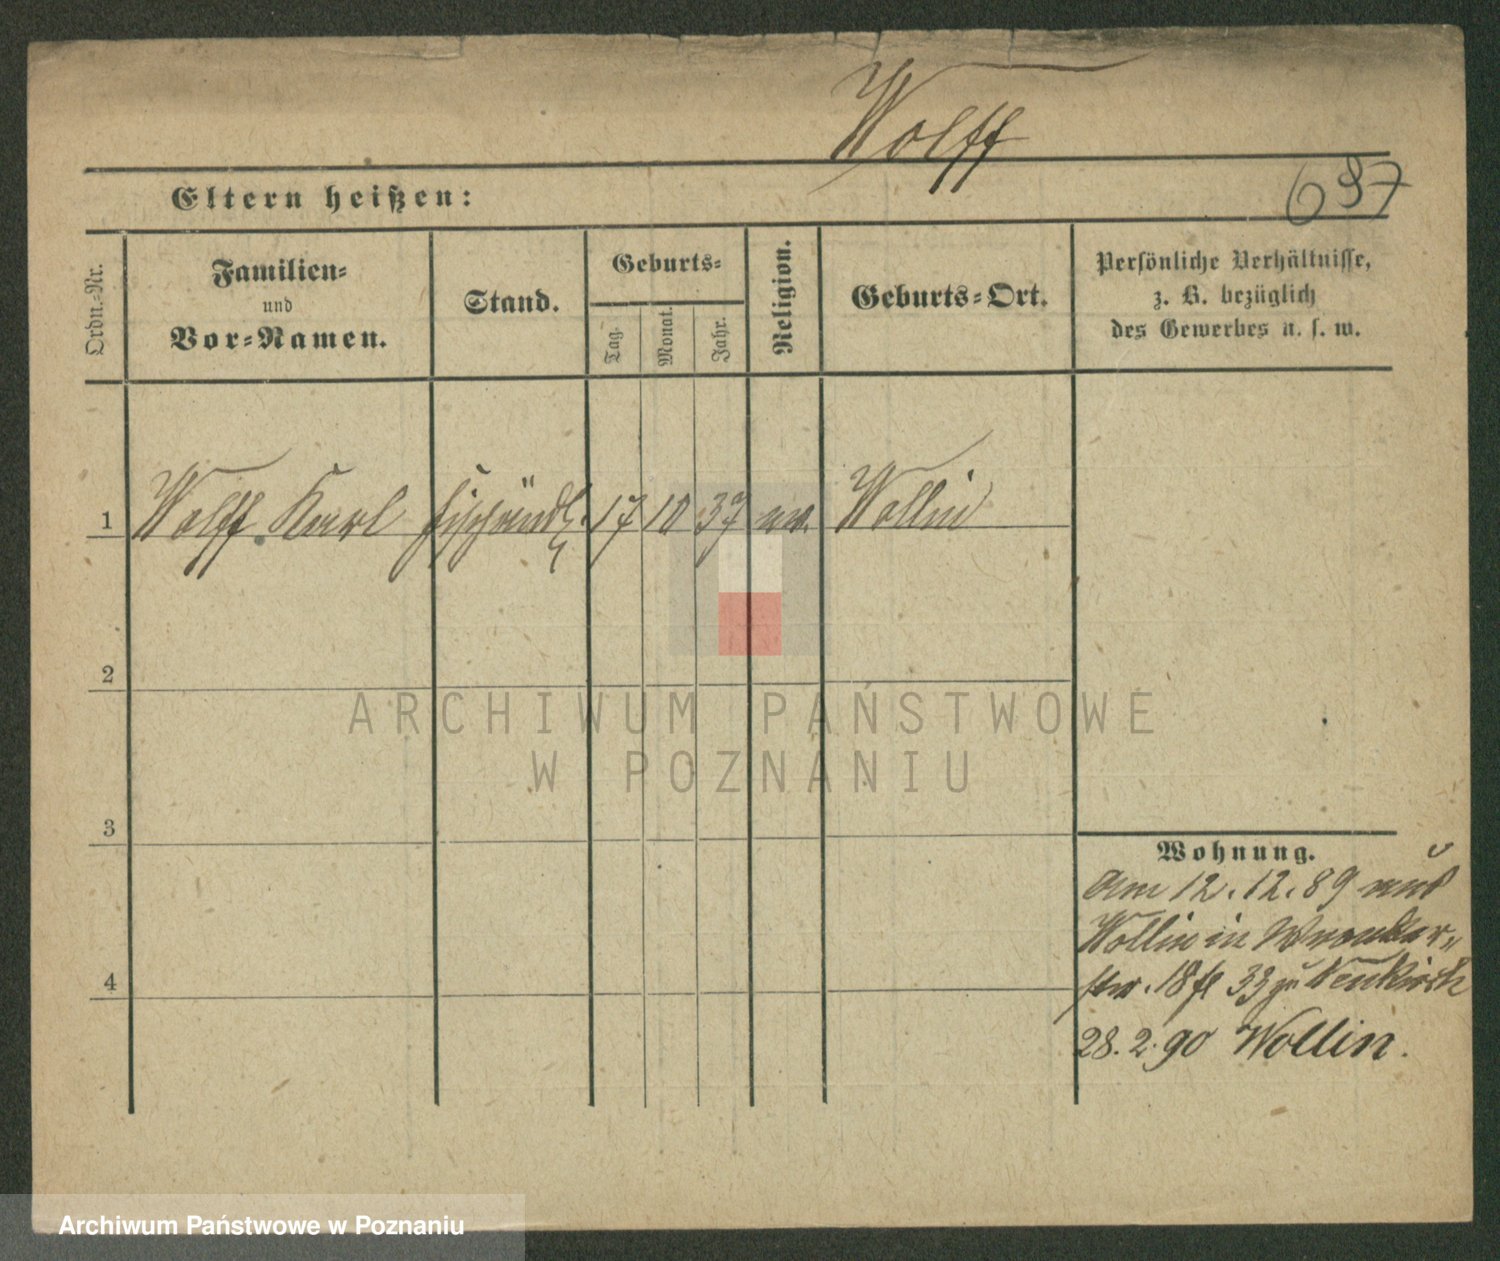 Wolff
697
Eltern heißen:
Ordn.-Nr.
Familien-
und
Vor-Namen.
Stand.
Geburts-
Tag.
Monat.
Jahr.
Religion.
Geburts-Ort.
Persönliche Verhältnisse,
z. B. bezüglich
des Gewerbes u. s. w.
1 Wolff Karl Fischhändl. 17 10 37 ev. Wollin
2
3
4
Wohnung.
Am 12.12.89 aus
Wollin in Wronker-
str. 18 33 Neukirch
28.2.90 Wollin.
ARCHIWUM PAŃSTWOWE
W POZNANIU
Archiwum Państwowe w Poznaniu